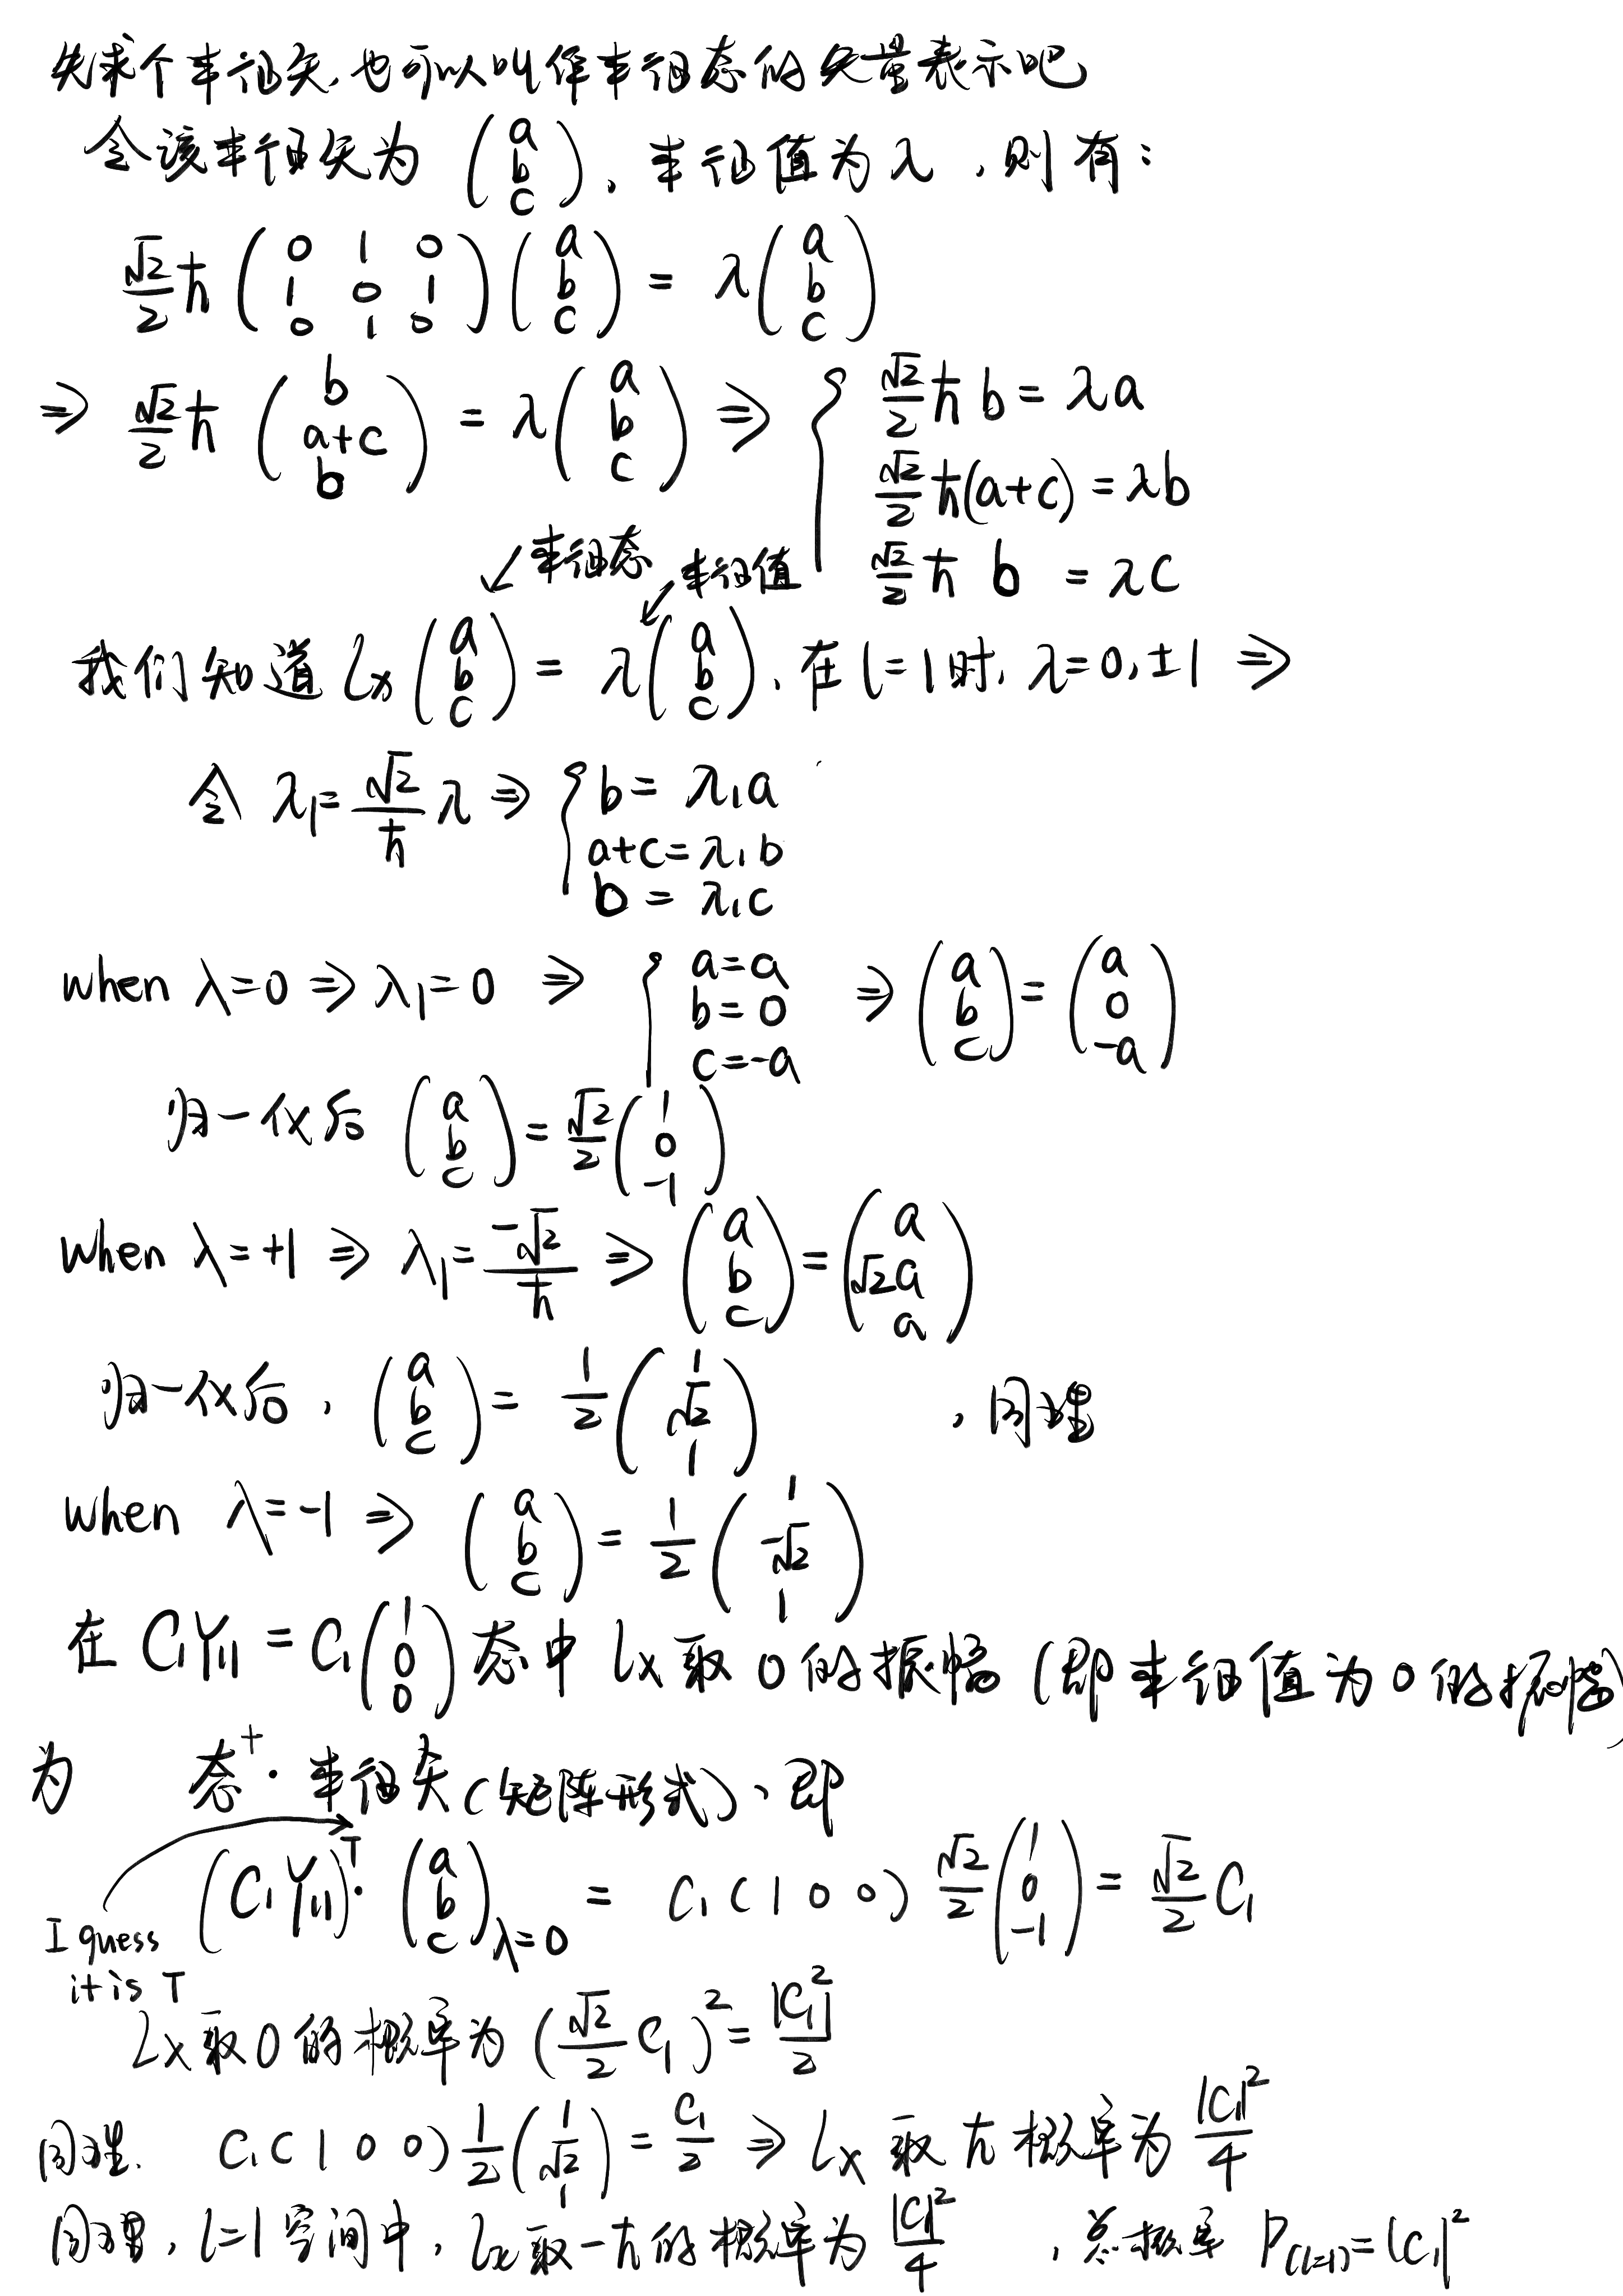 先求个本征矢,也可以叫作本征态的矢量表示吧
令该本征矢为 (a b c), 本征值为λ ,则有:
√2/2 ħ (0 1 0 1 0 1 0 1 0) (a b c) = λ (a b c)
⇒ √2/2 ħ (b a+c b) = λ (a b c) ⇒ { √2/2 ħ b = λa
√2/2 ħ(a+c) = λb
√2/2 ħ b = λc
↙本征态 ↙本征值
我们知道 Lx (a b c) = λ (a b c), 在 l=1时, λ=0,±1 ⇒
令 λ1= √2/ħ λ ⇒ { b = λ1a
a+c=λ1b
b = λ1c
when λ=0 ⇒ λ1=0 ⇒ { a=a b=0 c=-a ⇒ (a b c) = (a 0 -a)
归一化后 (a b c) = √2/2 (1 0 -1)
when λ=+1 ⇒ λ1= -√2/ħ ⇒ (a b c) = (a √2a a)
归一化后, (a b c) = 1/2 (1 √2 1) ,同理
when λ=-1 ⇒ (a b c) = 1/2 (1 -√2 1)
在 C1Y11 = C1 (1 0 0) 态中 Lx 取 0 的振幅 (即本征值为 0 的振幅)
为 态⁺·本征矢(矩阵形式)、即
(C1Y11)ᵀ· (a b c)λ=0 = C1 (1 0 0) √2/2 (1 0 -1) = √2/2 C1
I guess
it is T
Lx取0的概率为 (√2/2 C1)² = |C1|²/2
同理. C1 (1 0 0) 1/2 (1 √2 1) = C1/2 ⇒ Lx 取 ħ 概率为 |C1|²/4
同理, l=1空间中, Lx取-ħ的概率为 |C1|²/4 , 总概率 P(l=1)=|C1|²